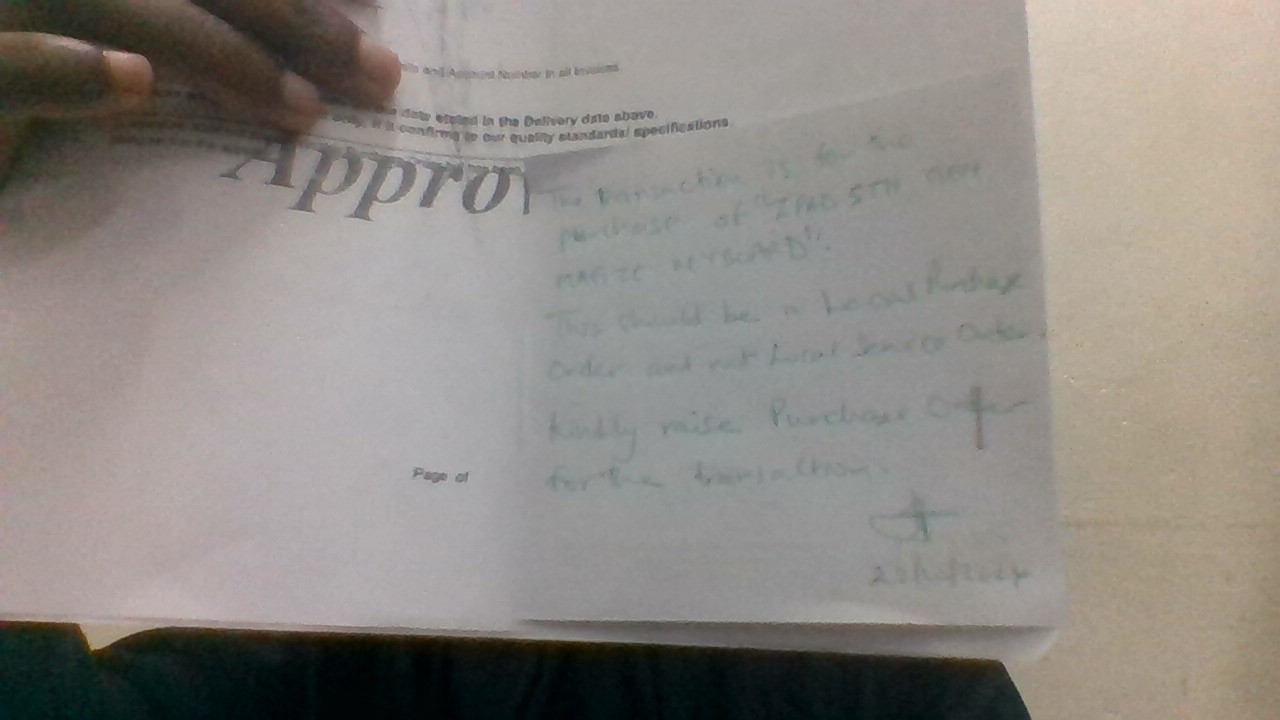 and Account Number in all invoices
date stated in the Delivery date above.
if it confirms to our quality standards/ specifications
Appro
The transaction is for the
purchase of "IPAD 5TH GEN
MAGIC KEYBOARD".
This should be a Local Purchase
Order and not Local Service Order.
Kindly raise Purchase Order
for the transaction.
Page of